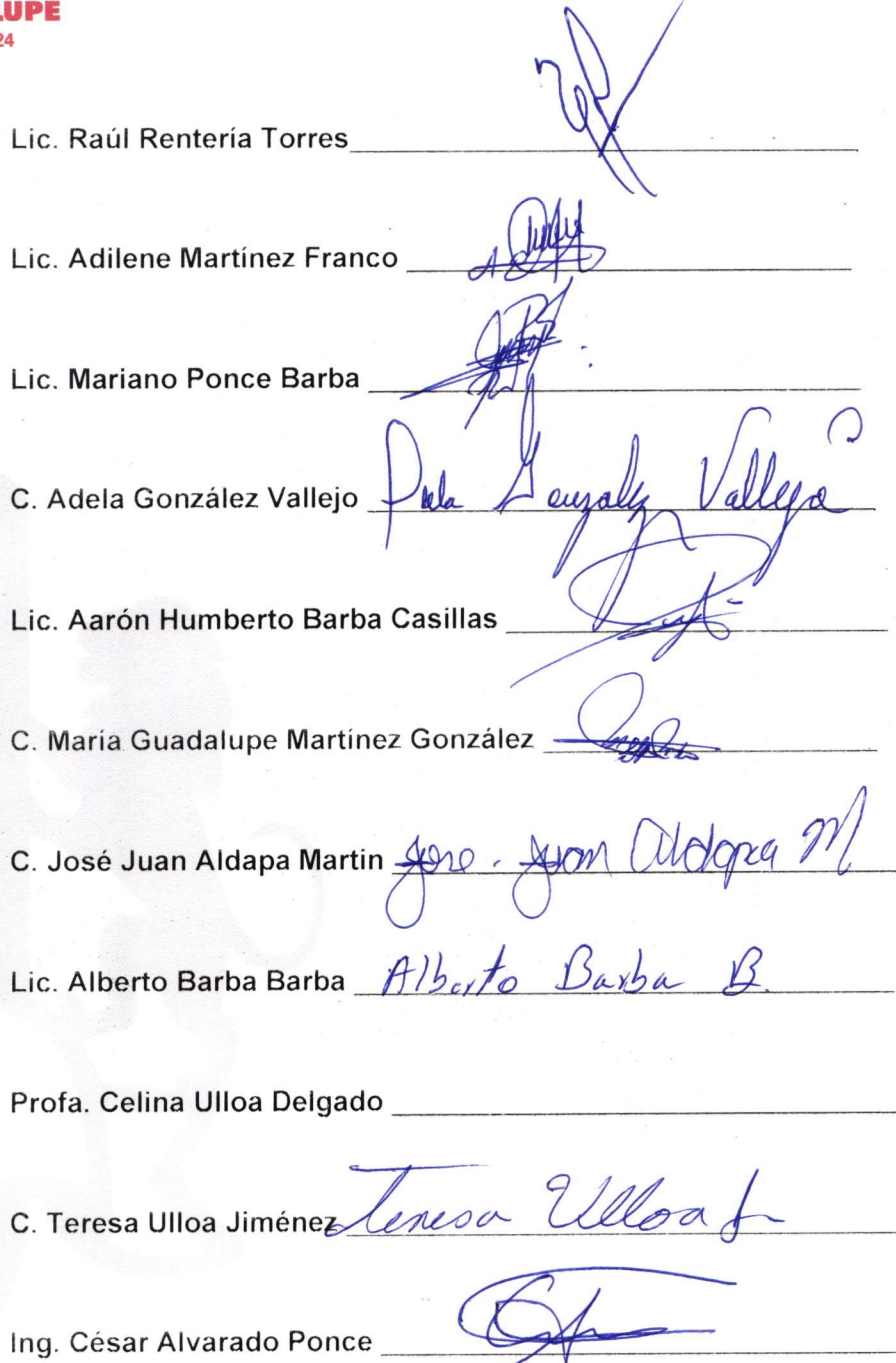 LUPE
24
Lic. Raúl Rentería Torres
Lic. Adilene Martínez Franco
Lic. Mariano Ponce Barba
C. Adela González Vallejo González Vallejo
Lic. Aarón Humberto Barba Casillas
C. María Guadalupe Martínez González
C. José Juan Aldapa Martin Jose. Juan Aldapa M
Lic. Alberto Barba Barba Alberto Barba B.
Profa. Celina Ulloa Delgado
C. Teresa Ulloa Jiménez Teresa Ulloa J
Ing. César Alvarado Ponce